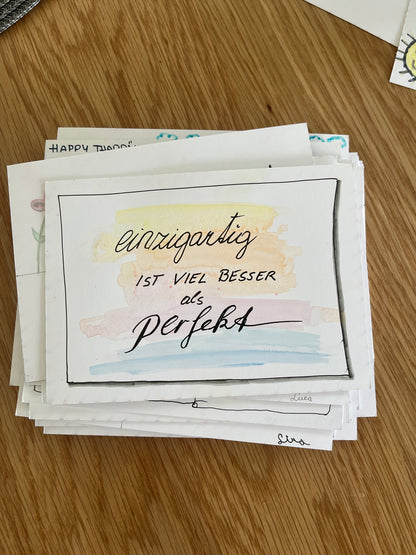 HAPPY
einzigartig
IST VIEL BESSER
als
perfekt
Luca
Lira